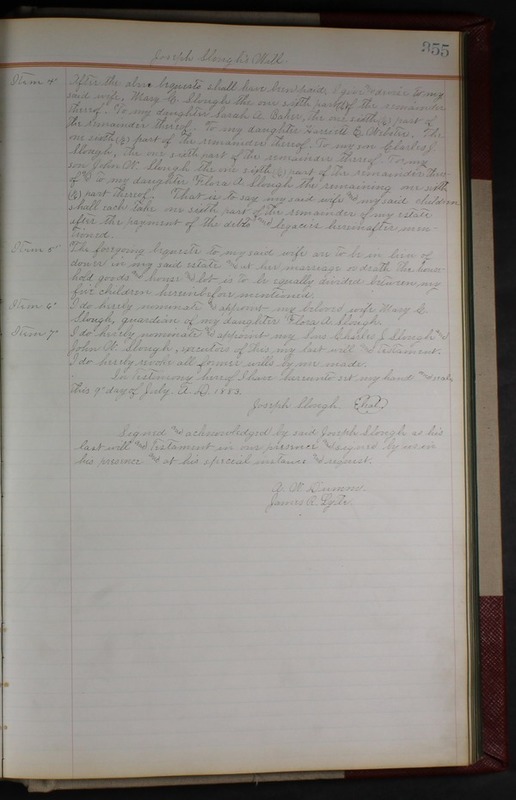 355
Joseph Slough's Will
Item 4" After the above bequests shall have been paid, I give and devise to my
said wife, Mary E. Slough the one sixth part (1/6) of the remainder
thereof. To my daughter Sarah A. Baker, the one sixth (1/6) part of
the remainder thereof. To my daughter Harriett E. Webster. The
one sixth (1/6) part of the remainder thereof. To my son Charles J.
Slough, the one sixth part of the remainder thereof. To my
son John W. Slough the one sixth (1/6) part of the remainder there-
of and To my daughter Flora A. Slough the remaining one sixth
(1/6) part thereof. That is to say my said wife and my said children
shall each take one sixth part of the remainder of my estate
after the payment of the debts and legacies hereinafter men-
tioned.
Item 5" The foregoing bequests to my said wife are to be in lieu of
dower in my said estate and at her marriage or death the house-
hold goods and house and lot is to be equally divided between my
five children hereinbefore mentioned.
Item 6" I do hereby nominate and appoint my beloved wife Mary E.
Slough, guardian of my daughter Flora A. Slough.
Item 7" I do hereby nominate and appoint my sons Charles J. Slough and
John W. Slough, executors of this my last will and testament.
I do hereby revoke all former wills by me made.
In Testimony hereof I have hereunto set my hand and seal,
this 9" day of July. A.D. 1883.
Joseph Slough (Seal)
Signed and acknowledged by said Joseph Slough as his
last will and Testament in our presence and signed by us in
his presence and at his special instance and request.
A. W.
James R.